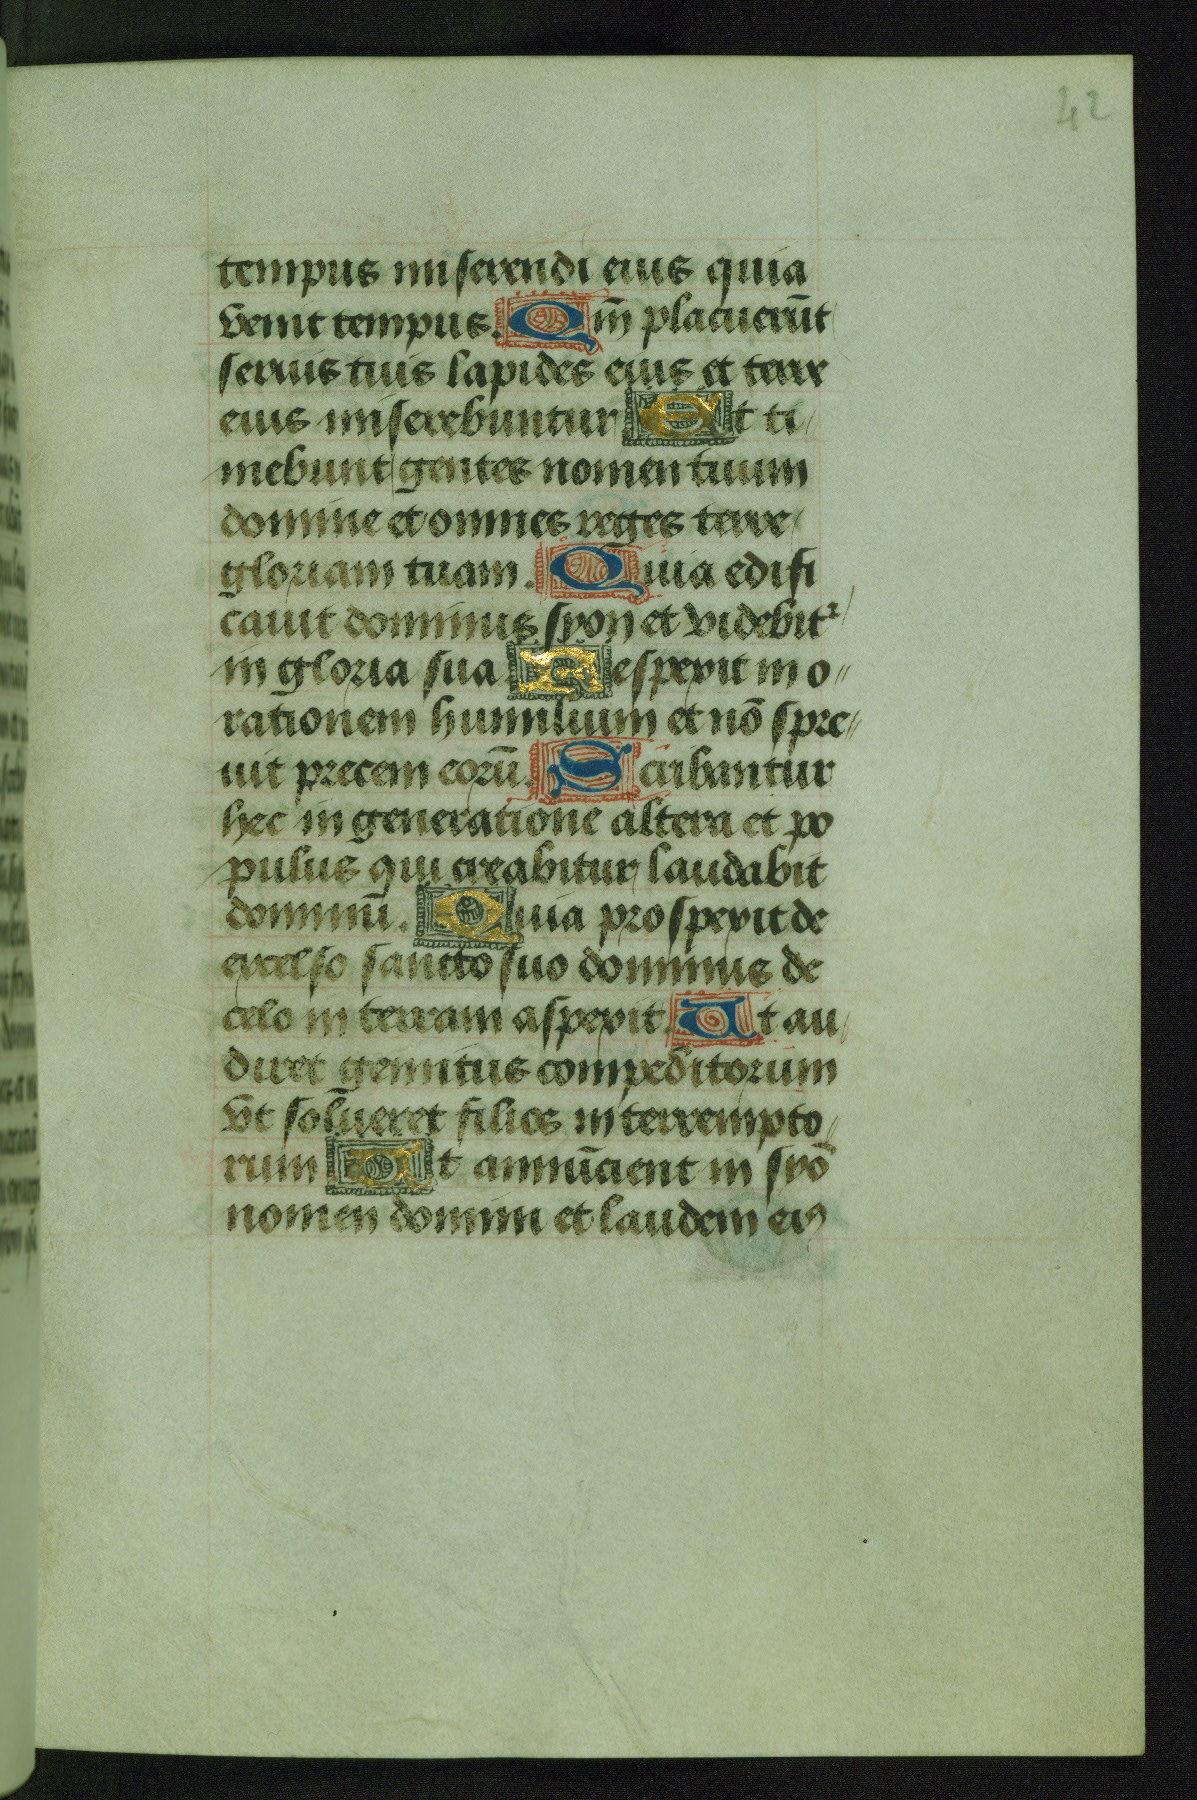 42
tempus miserendi eius quia
venit tempus. Qm̄ placuerūt
seruis tuis lapides eius et terre
eius miserebuntur. Et ti/
mebunt gentes nomen tuum
domine et omnes reges terre
gloriam tuam. Quia edifi
cauit dominus syon et videbit᷑
in gloria sua. Respexit in o//
rationem humilium et nō spre//
uit precem eorū. Scribantur
hec in generatione altera et po
pulus qui creabitur laudabit
dominū. Quia prospexit de
excelso sancto suo dominus de
celo in terram aspexit. Ut au/
diret gemitus compeditorum
vt solueret filios interrempto/
rum Ut annūcient in syō
nomen domini et laudem eiꝰ